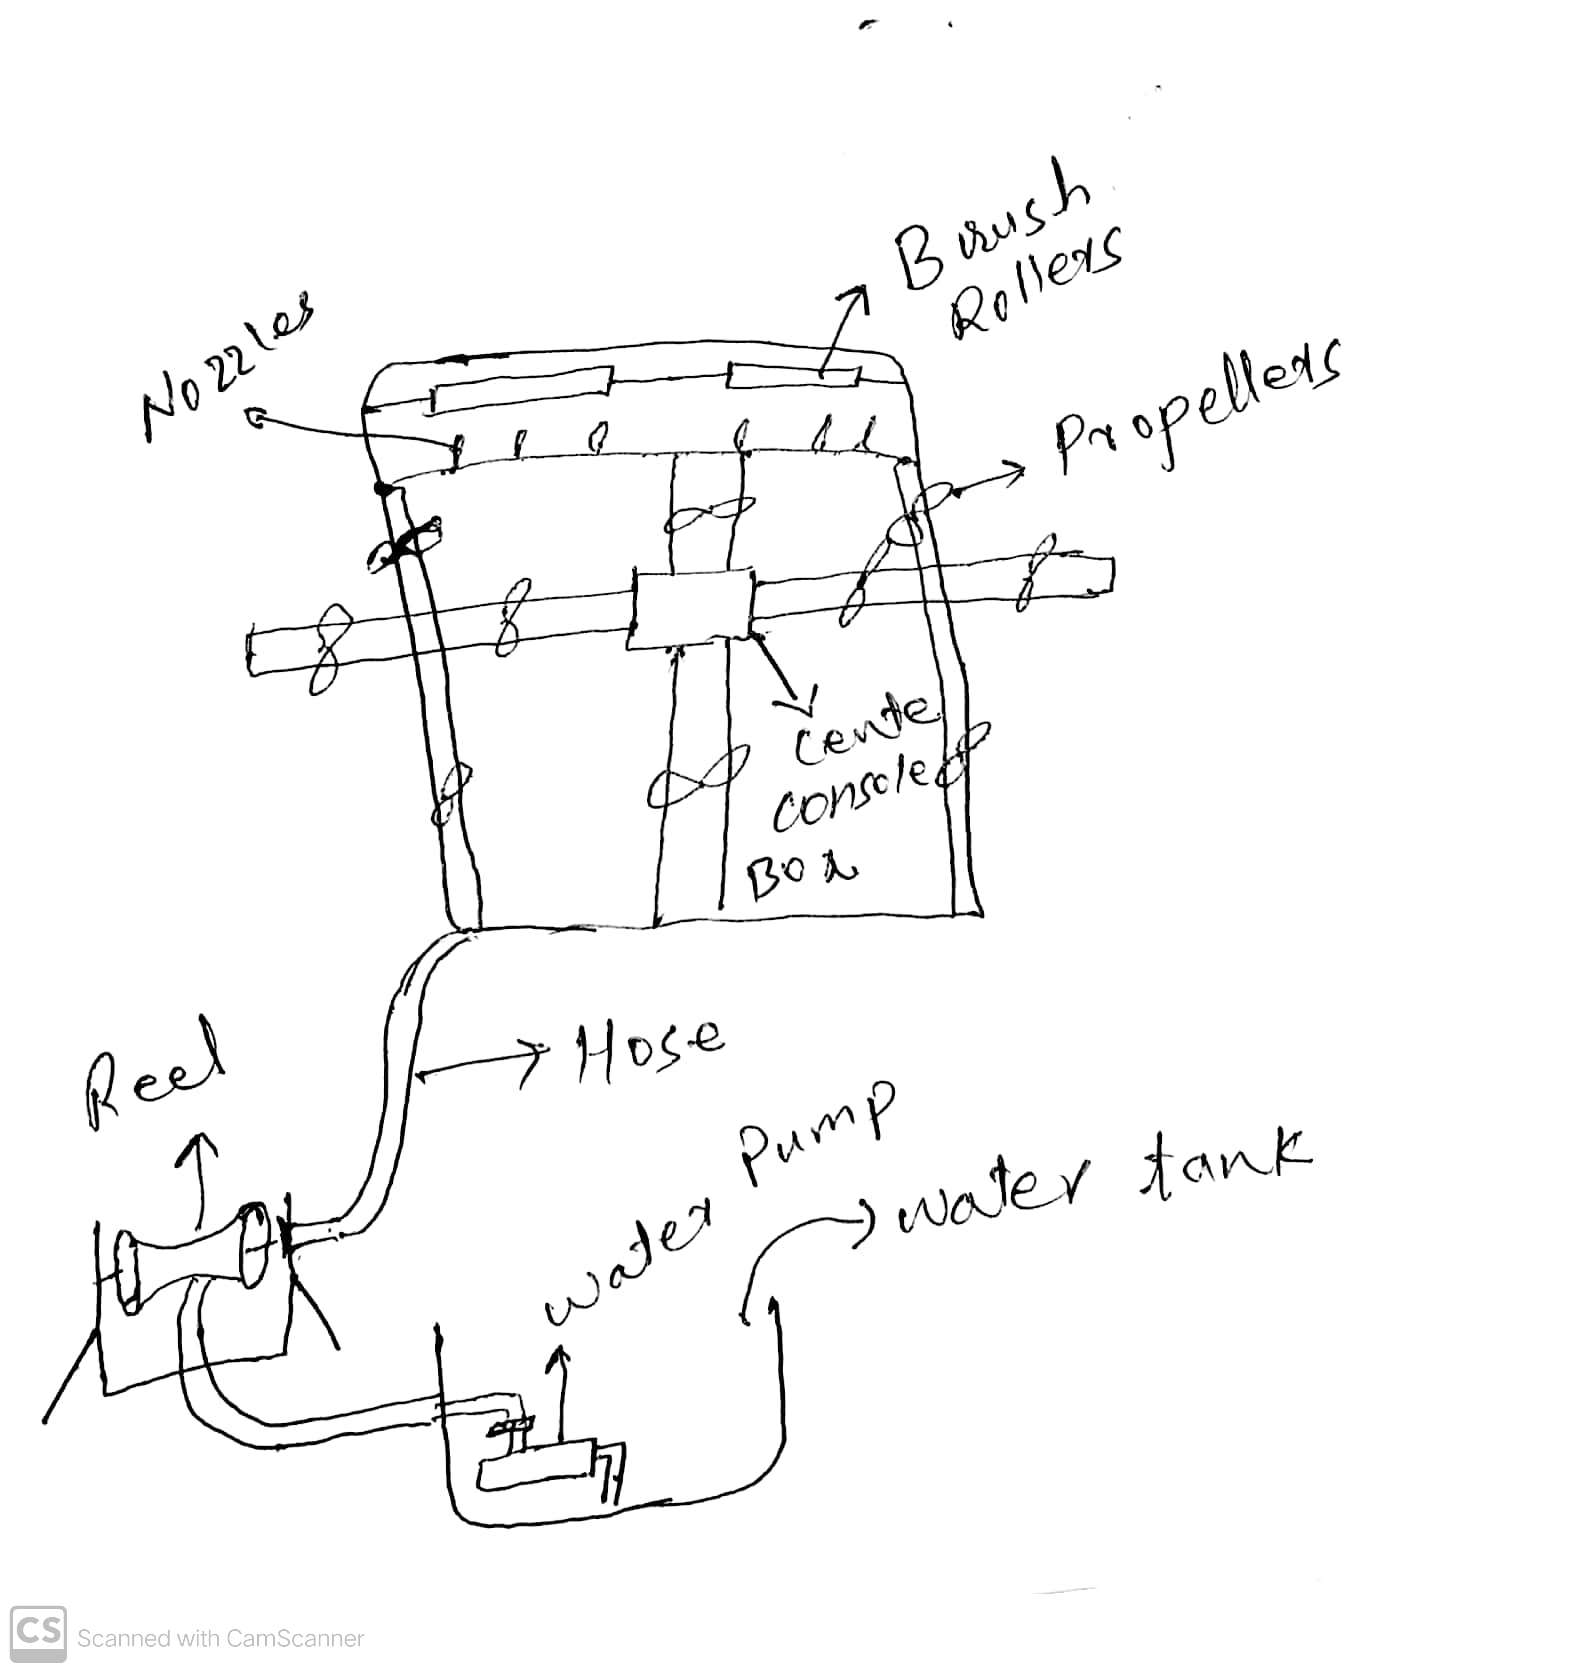 Brush
Rollers
Nozzles
Propellers
Cente
console
Box
Hose
Reel
water Pump
water tank
CS Scanned with CamScanner